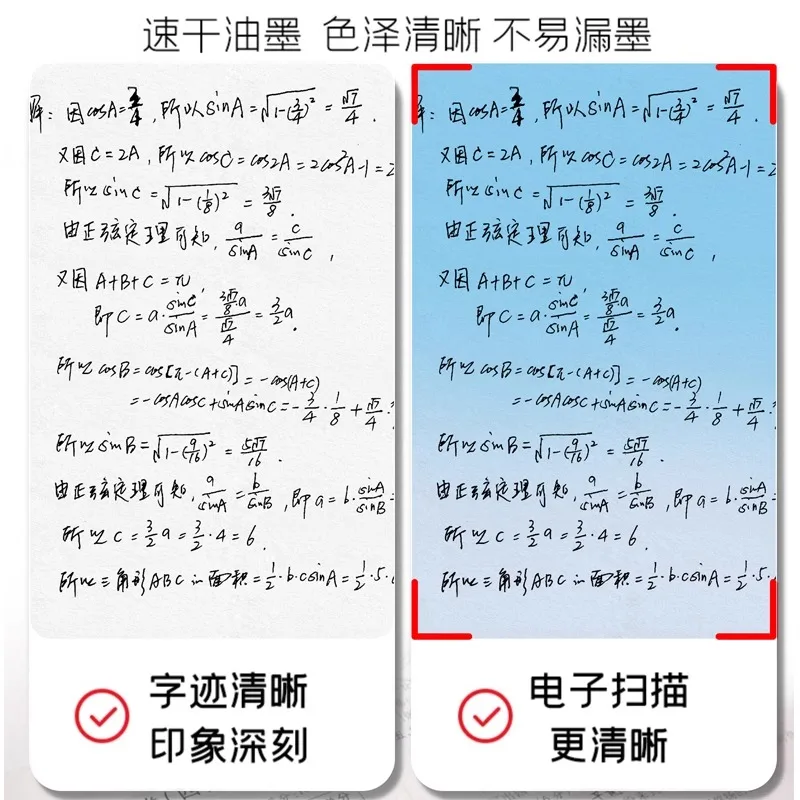 速干油墨 色泽清晰 不易漏墨
解：因cosA=3/4，所以sinA=√(1-(3/4)²)=√7/4．
又因C=2A，所以cosC=cos2A=2cos²A-1=2
所以sinC=√(1-(1/8)²)=3√7/8．
由正弦定理可知，a/sinA=c/sinC，
又因A+B+C=π，
即C=a·sinC/sinA=(3√7/8 a)/(√7/4)=3/2a．
所以cosB=cos[π-(A+C)]=-cos(A+C)
=-cosAcosC+sinAsinC=-3/4·1/8+√7/4·3
所以sinB=√(1-(9/16)²)=5√7/16．
由正弦定理可知，a/sinA=b/sinB，即a=b·sinA/sinB=
所以c=3/2a=3/2·4=6．
所以三角形ABC的面积=1/2·b·csinA=1/2·5·
字迹清晰
印象深刻
解：因cosA=3/4，所以sinA=√(1-(3/4)²)=√7/4．
又因C=2A，所以cosC=cos2A=2cos²A-1=2
所以sinC=√(1-(1/8)²)=3√7/8．
由正弦定理可知，a/sinA=c/sinC，
又因A+B+C=π
即C=a·sinC/sinA=(3√7/8 a)/(√7/4)=3/2a．
所以cosB=cos[π-(A+C)]=-cos(A+C)
=-cosAcosC+sinAsinC=-3/4·1/8+√7/4·
所以sinB=√(1-(9/16)²)=5√7/16．
由正弦定理可知，a/sinA=b/sinB，即a=b·sinA/sinB=
所以c=3/2a=3/2·4=6．
所以三角形ABC的面积=1/2·b·csinA=1/2·5·
电子扫描
更清晰